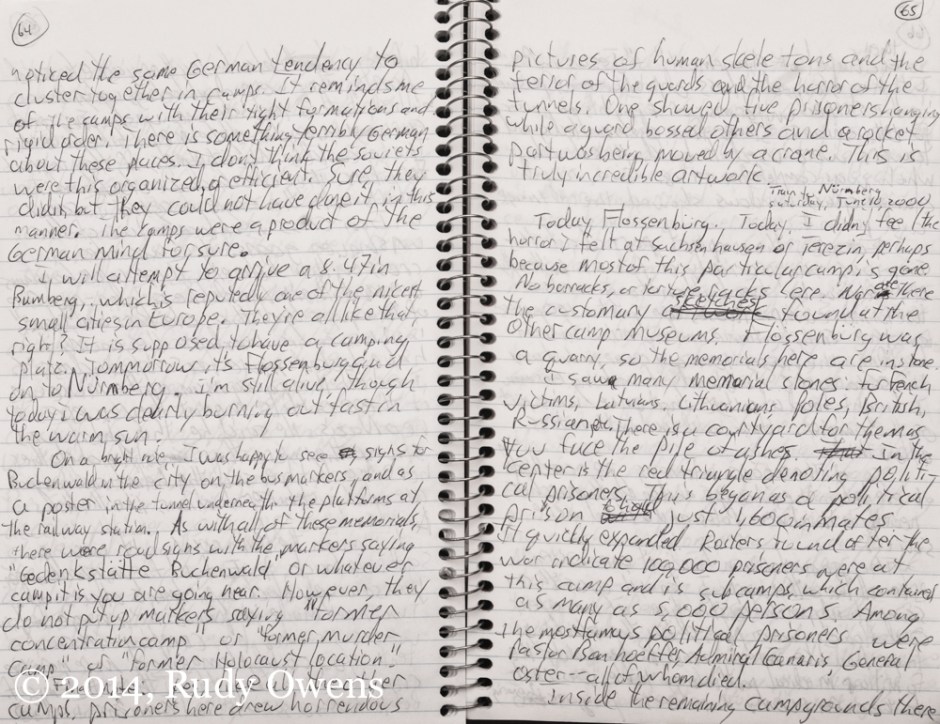 64
noticed the same German tendency to
cluster together in camps. It reminds me
of the camps with their tight formations and
rigid order. There is something terribly German
about these places. I don't think the soviets
were this organized or efficient. Sure, they
did it, but they could not have done it in this
manner. The camps were a product of the
German mind for sure.
I will attempt to arrive a 8:47 in
Bamberg, which is reputedly one of the nicest
small cities in Europe. They're all like that,
right? It is supposed to have a camping
place. Tommorrow, it's Flossenburg and
on to Nürnberg. I'm still alive, though
today i was clearly burning out fast in
the warm sun.
On a bright note - I was happy to see signs for
Buchenwald in the city on the bus markers, and as
a poster in the tunnel underneath the platforms at
the railway station. As with all of these memorials,
there were road signs with the markers saying
"Gedenkstätte Buchenwald" or whatever
camp it is you are going near. However, they
do not put up markers saying "former
concentration camp" or "former murder
camp" or "former Holocaust location."
other
camps, prisoners here drew horrendous
© 2014, Rudy Owens
65
pictures of human skeletons and the
terror of the guards and the horror of the
tunnels. One showed five prisoners hanging
while a guard bossed others and a rocket
part was being moved by a crane. This is
truly incredible artwork
Train to Nürnberg
Saturday, June 10, 2000
Today Flossenbürg. Today, I didn't fee l the
horror I felt at Sachsenhausen or Terezin, perhaps
because most of this particular camp is gone
No barracks, or torture racks here. Nor are there
the customary sketches found at the
other camp museums. Flossenbürg was
a quarry, so the memorials here are in stone.
I saw many memorial stones: for French
victims, Latvians, Lithuanians Poles, British,
Russian, etc. There is a courtyard for them as
you face the pile of ashes. In the
center is the red triangle denoting politi-
cal prisoners. This began as a political
prison to hold just 1,600 inmates
It quickly expanded Rosters found after the
war indicate 100,000 prisoners were at
this camp and is subcamps, which contained
as many as 5,000 persons. Among
the most famous political prisoners were
Pastor Bonhoeffer, Admiral Canaris, General
Oster -- all of whom died.
Inside the remaining campgrounds there